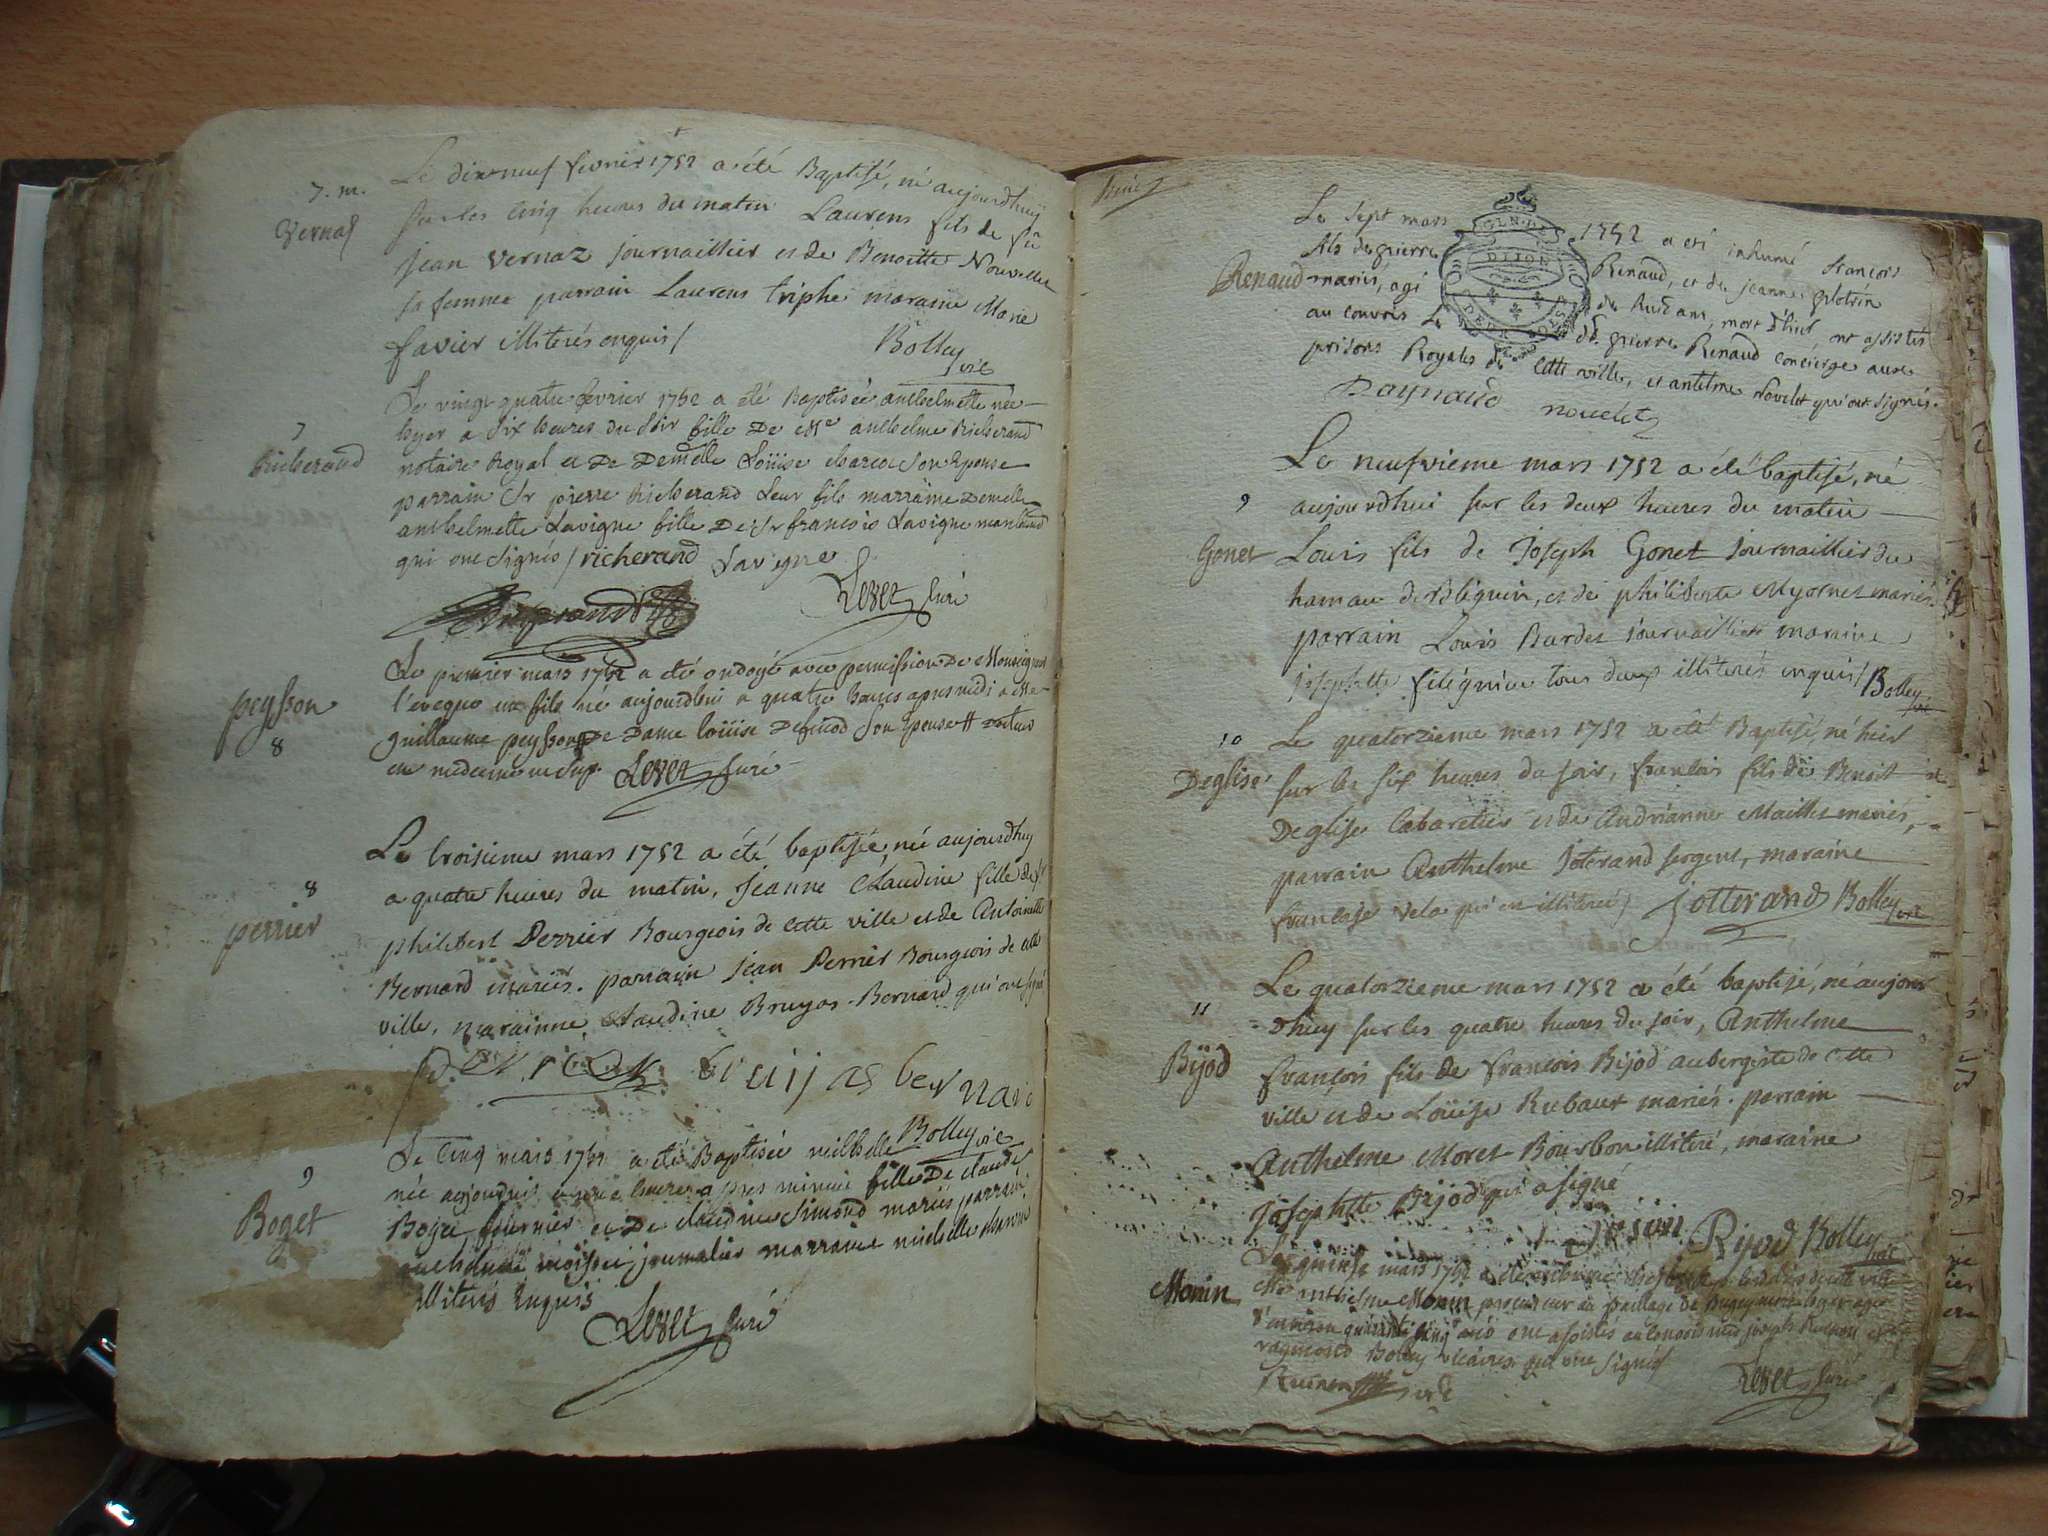 7. m.
Vernas
Le dixneuf fevrier 1752 a été Baptisé, né aujourdhuy
sur les cinq heures du matin Laurens fils de
jean Vernaz journaillier et de Benoitte Nouvellet
sa femme parrain Laurens triphe maraine Marie
favier illiterés enquis /
Bolley vic
7
Richerand
Le vingt quatre fevrier 1752 a été Baptisée anthelmette née
hyer a six heures du soir fille De Me anthelme Richerand
notaire Royal et De Demelle Loüise charcot son Epouse
parrain Sr pierre Richerand Leur fils marraine Demelle
anthelmette Lavigne fille De Sr francois Lavigne marchand
qui ont signés / richerand Lavigne
Richerand
Levet Curé
peysson
8
Le premier mars 1752 a été ondoyé avec permission De Monseigneur
l'eveque un fils né aujourdhui a quatre heures apres midi a Me
guillaume peysson De Dame loüise son Epouse # docteur
en medecine Levet Curé
8
perrier
Le troisieme mars 1752 a été baptisée, née aujourdhuy
a quatre heures du matin, Jeanne Claudine fille de Sr
philibert Perrier Bourgeois de cette ville et de Antoinette
Bernard mariés. parrain Jean Perrier Bourgeois de cette
ville, marainne Claudine Bruyas-Bernard qui ont signé
perrier bruijas bernard
Bolley vic
9
Boget
Le Cinq mars 1752 a été Baptisée michelle
née aujourdui heures apres minuit fille De claude
Boget fournier et De claudine Simond mariés parrain
moissu journalier marraine michelle
illiterés Enquis
Levet Curé
Renaud
Le sept mars 1752 a eté inhumé francois
fils de pierre Renaud, et de jeanne
mariés, agé de huit ans, mort d'hier, ont assistés
au convois Le dt. pierre Renaud concierge aux
prisons Royales de cette ville, et antelme Novelet qui ont signés.
Raynaud nouelet
9
Gonet
Le neufvieme mars 1752 a été baptisé, né
aujourdhui sur les deux heures du matin
Louis fils de Joseph Gonet journaillier du
hamau de Bliguin, et de philiberte Myornet mariés
parrain Louis Burdet journaillier maraine
josephette tous deux illiterés enquis / Bolley vic
10
Deglise
Le quatorzieme mars 1752 a été Baptisé, né hier
sur les six heures du soir, francois fils de Benoit
Deglise Cabaretier et de Andrianne Maillet mariés,
parrain Anthelme Joterand sergent, maraine
francoise Vela qui en illiteré / Jotterand Bolley vic
11
Bijod
Le quatorzieme mars 1752 a été baptisé, né aujour
dhuy sur les quatre heures du soir, Anthelme
francois fils de francois Bijod aubergiste de cette
ville et de Loüise Rubaut mariés. parrain
Anthelme Moret Bourbon illiteré, maraine
Josephtte Bijod qui a signé
Bijod Bolley vic
Monin
Le quinze mars 1752 a été
Me anthelme Monin procureur au Baillage de Bugey mort hyer agé
d'environ quarante cinq ans ont assistés au convois
raymond Bolley vicaires qui ont signés
Levet Curé